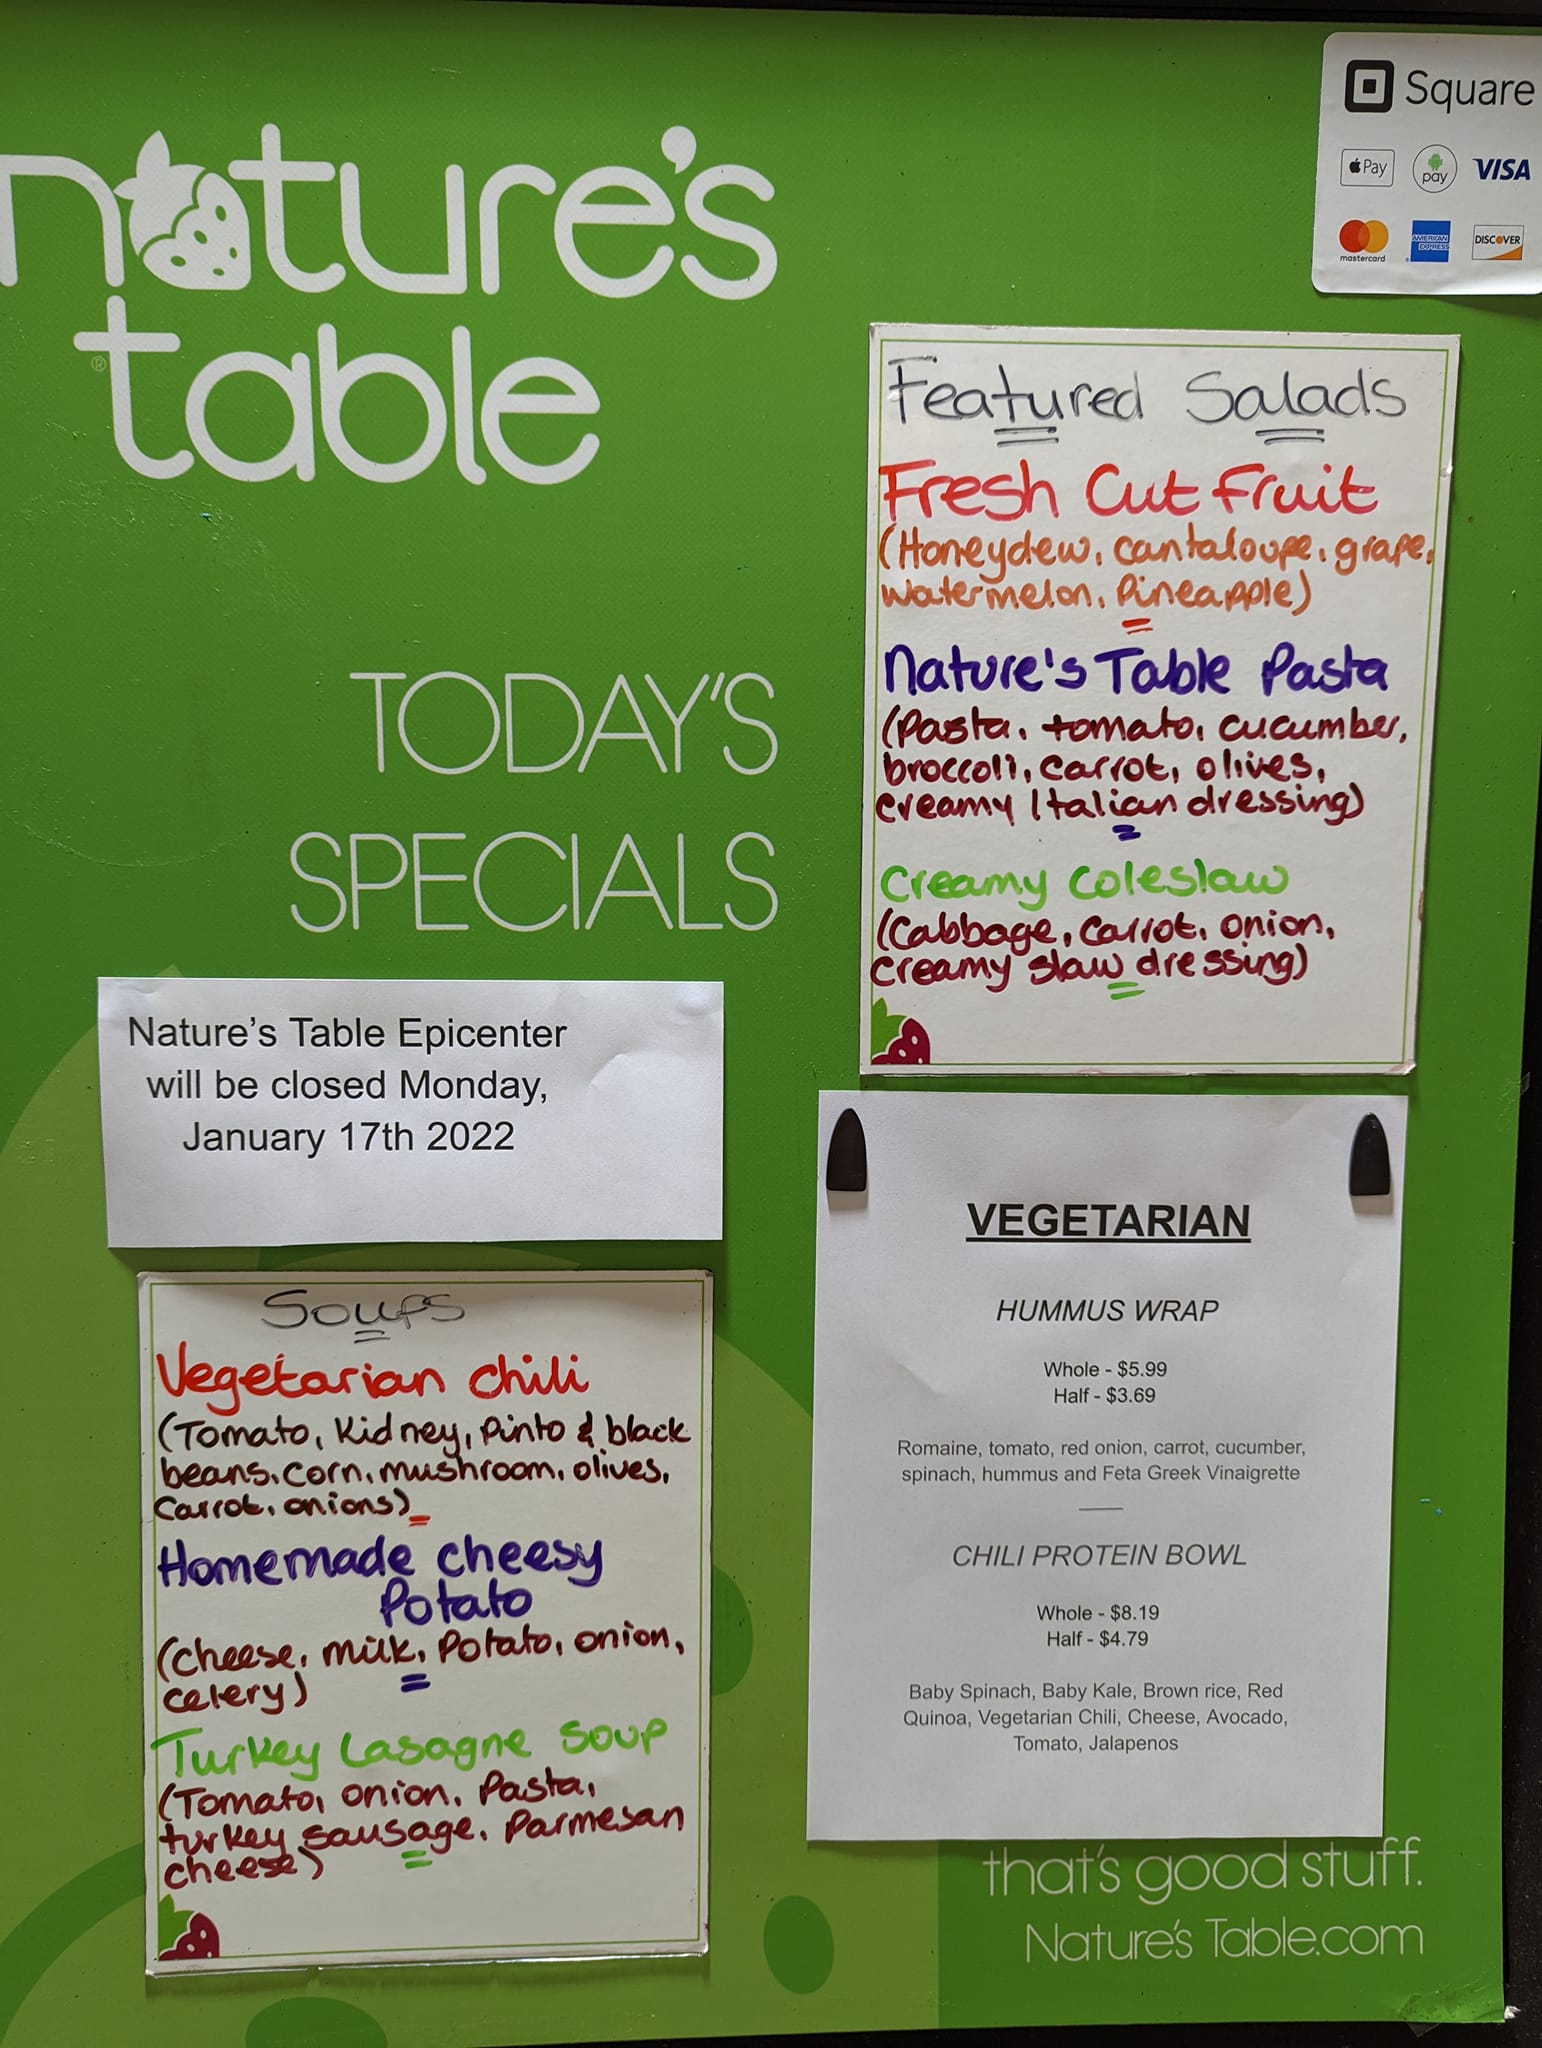 nature's
table
®
Square
Pay
pay
VISA
mastercard
AMERICAN EXPRESS
DISCOVER
TODAY'S
SPECIALS
Featured Salads
Fresh Cut Fruit
(Honeydew, cantaloupe, grape,
watermelon, Pineapple)
Nature's Table Pasta
(Pasta, tomato, cucumber,
broccoli, carrot, olives,
creamy Italian dressing)
Creamy Coleslaw
(Cabbage, Carrot, onion,
creamy slaw dressing)
Nature's Table Epicenter
will be closed Monday,
January 17th 2022
Soups
Vegetarian chili
(Tomato, Kidney, Pinto & black
beans, corn, mushroom, olives,
Carrot, onions)
Homemade cheesy
Potato
(cheese, milk, Potato, onion,
celery)
Turkey Lasagne Soup
(Tomato, onion, Pasta,
turkey sausage, Parmesan
cheese)
VEGETARIAN
HUMMUS WRAP
Whole - $5.99
Half - $3.69
Romaine, tomato, red onion, carrot, cucumber,
spinach, hummus and Feta Greek Vinaigrette
CHILI PROTEIN BOWL
Whole - $8.19
Half - $4.79
Baby Spinach, Baby Kale, Brown rice, Red
Quinoa, Vegetarian Chili, Cheese, Avocado,
Tomato, Jalapenos
that's good stuff.
Nature's Table.com